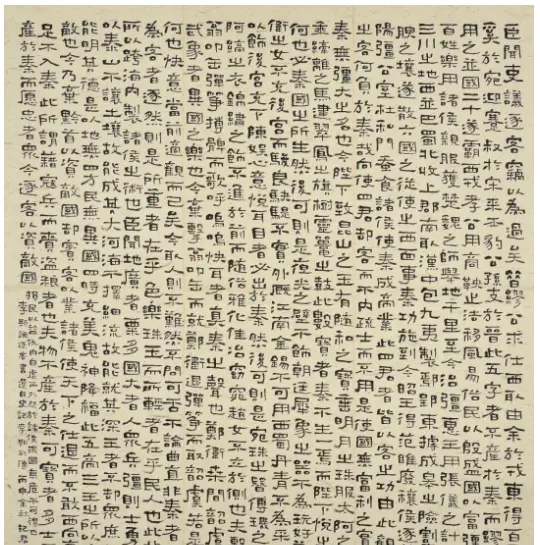 臣聞吏議逐客竊以為過矣昔繆公求仕西取由余於戎東得百
奚於宛迎蹇叔於宋來丕豹公孫支於晉此五子者不產於秦而繆
用之並國二十遂霸西戎孝公用商鞅之法移風易俗民以殷盛國以富彊
百姓樂用諸侯親服獲楚魏之師舉地千里至今治彊惠王用張儀之計
三川之地西並巴蜀北收上郡南取漢中包九夷製鄢郢東據成皋之險割
腴之壤遂散六國之從使之西面事秦功施到今昭王得范雎廢穰侯逐
陽彊公室杜私門蠶食諸侯使秦成帝業此四君者皆以客之功由此觀
之客何負於秦哉向使四君卻客而不內疏士而不用是使國無富利之實
秦無彊大之名也今陛下致昆山之玉有隨和之寶垂明月之珠服太阿之
乘纖離之馬建翠鳳之旗樹靈鼉之鼓此數寶者秦不生一焉而陛下悅之
何也必秦國之所生然後可則是夜光之璧不飾朝廷犀象之器不為玩好
衛之女不充後宮而駿良駃騠不實外廄江南金錫不可用西蜀丹青不為采
以飾後宮充下陳娛心意悅耳目者必出於秦然後可則是宛珠之簪傅璣之
阿縞之衣錦繡之飾不進於前而隨俗雅化佳冶窈窕趙女不立於側也夫擊
翁叩缶彈箏搏髀而歌呼嗚嗚快耳者真秦之聲也鄭衛桑間韶虞
武象者異國之樂也今棄擊甕叩缶而就鄭衛退彈箏而取韶虞若是
何也快意當前適觀而已矣今取人則不然不問可否不論曲直非秦者
為客者逐然則是所重者在乎色樂珠玉而所輕者在乎民人也此
所以跨海內製諸侯之術也臣聞地廣者粟多國大者人眾兵彊則士勇
以泰山不讓土壤故能成其大河海不擇細流故能就其深王者不卻眾庶
能明其德是以地無四方民無異國四時充美鬼神降福此五帝三王之所以
敵也今乃棄黔首以資敵國卻賓客以業諸侯使天下之士退而不敢西向
足不入秦此所謂藉寇兵而齎盜糧者也夫物不產於秦可寶者多士
產於秦而願忠者眾今逐客以資敵國
損民以益讎內自虛而外樹怨於諸侯求國無危不可得也